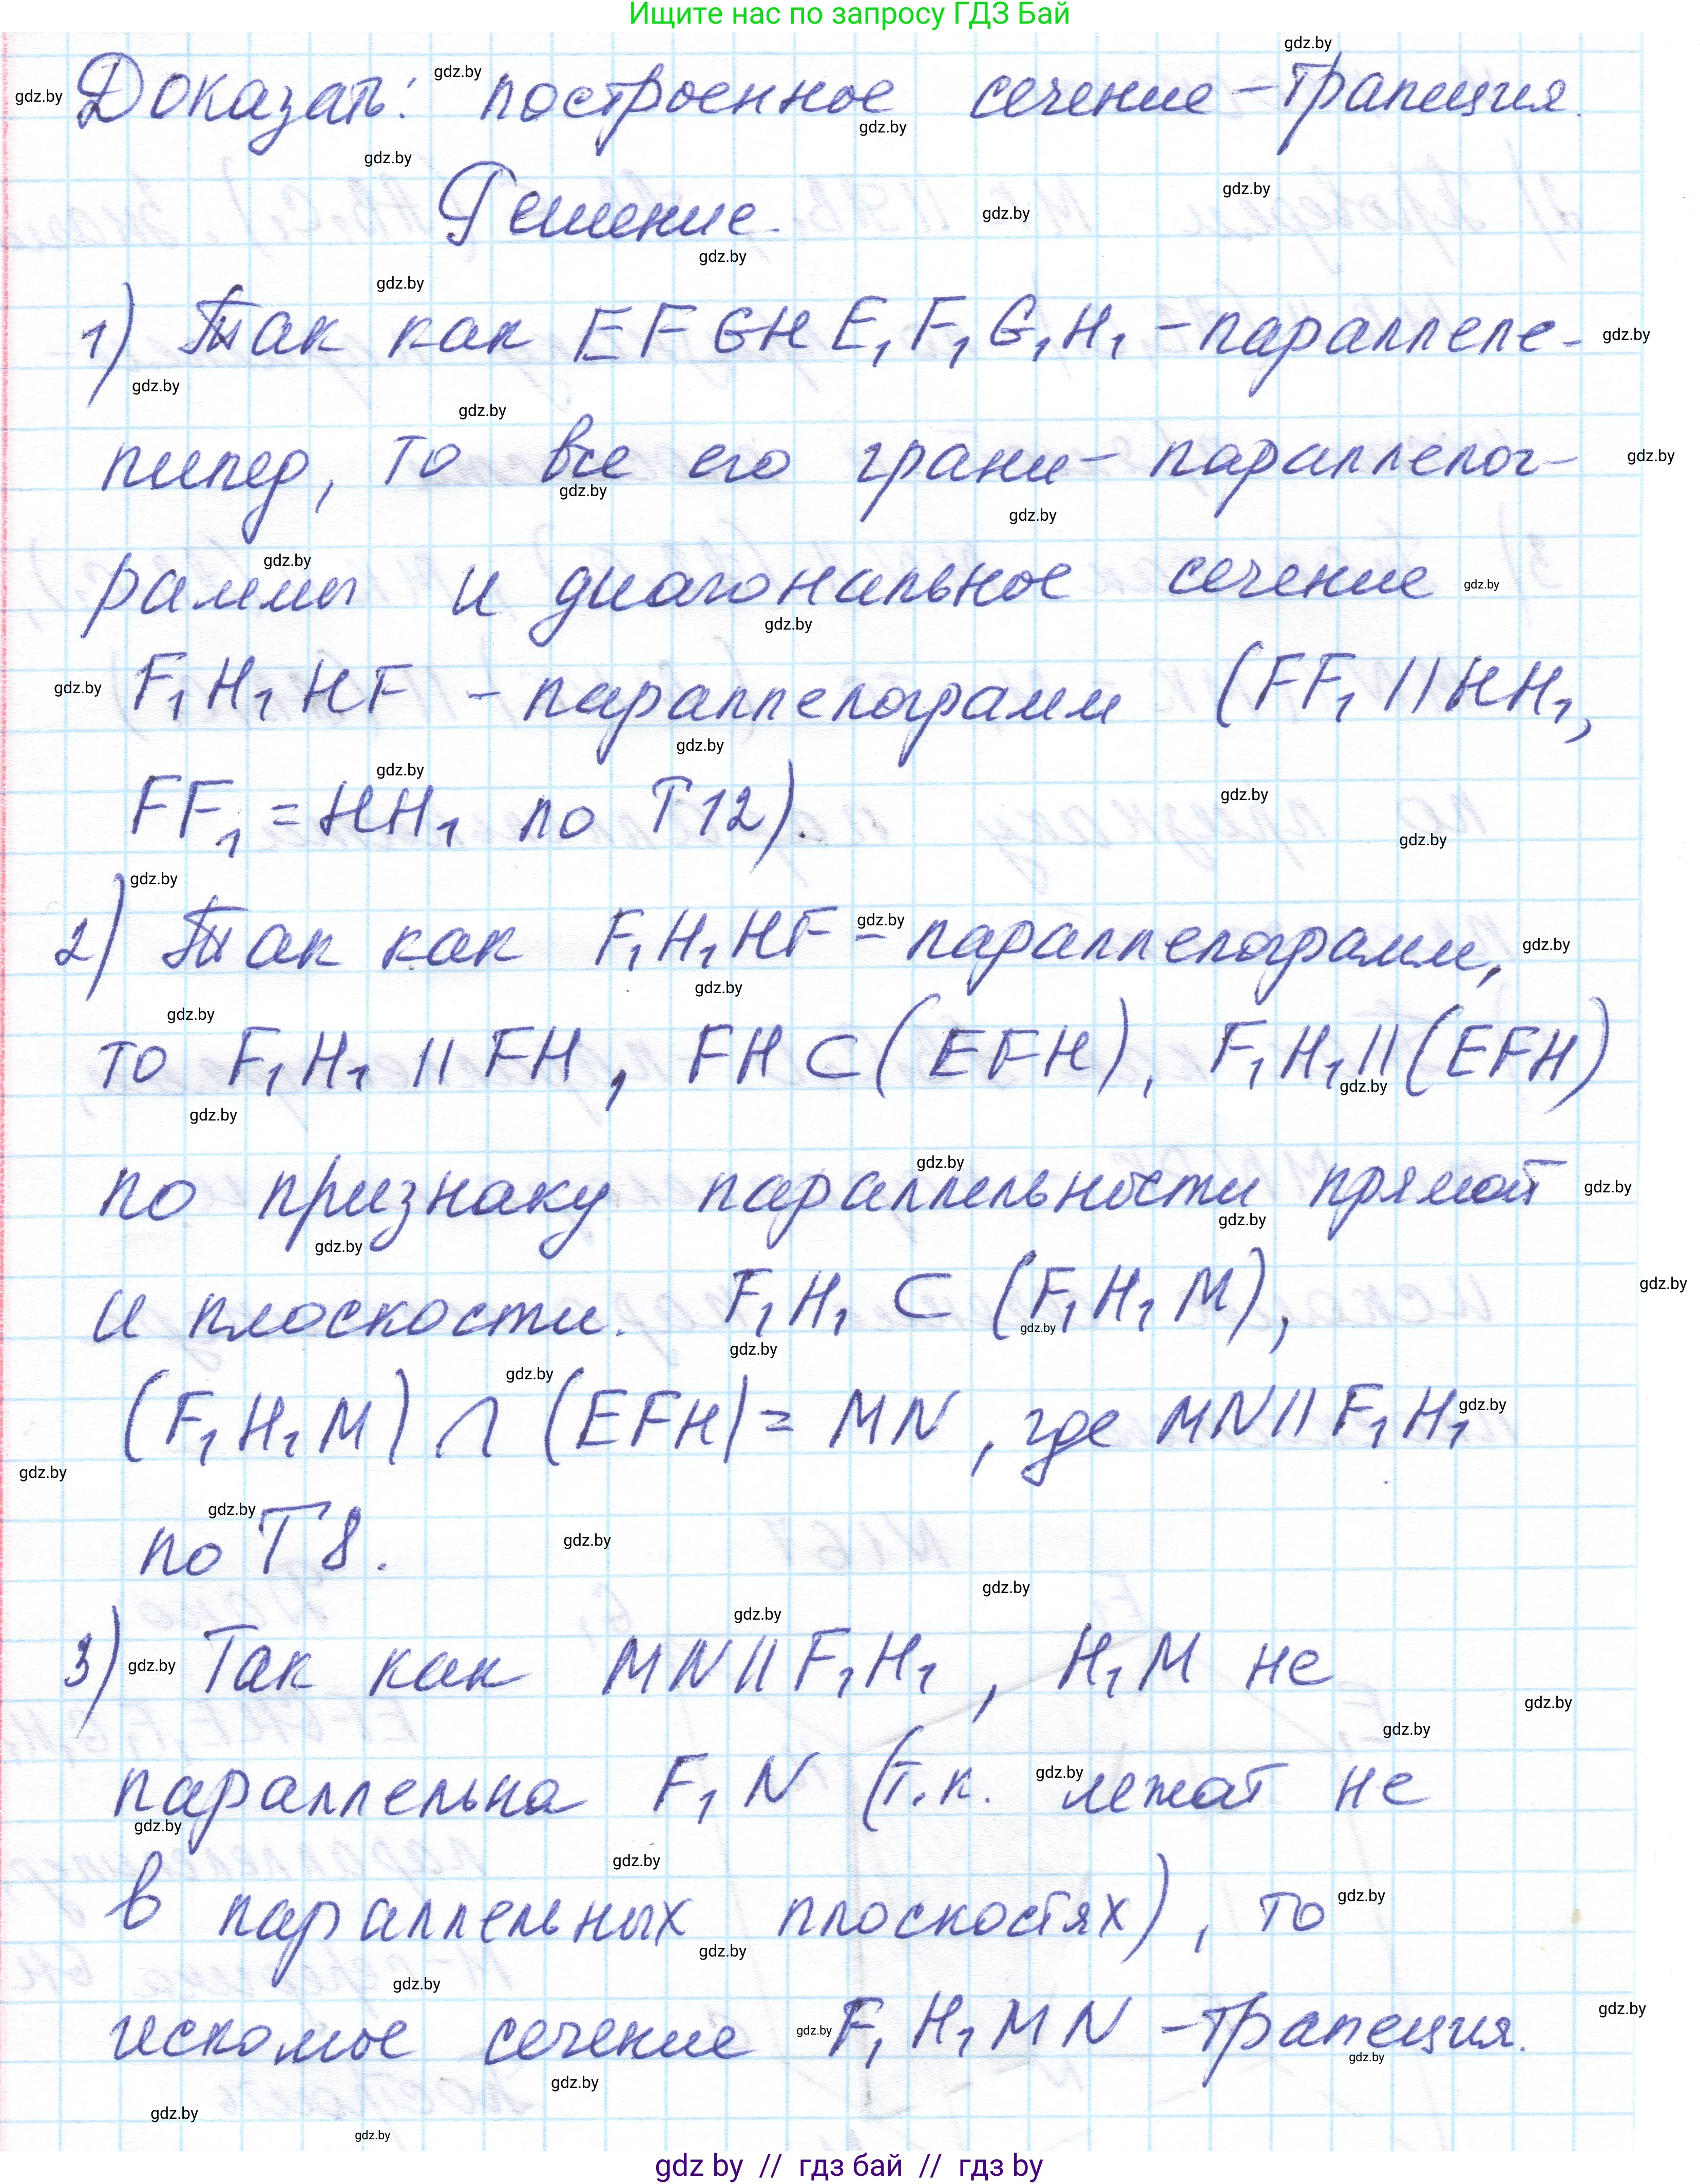 Ищите нас по запросу ГДЗ Бай
Доказать: построенное сечение – трапеция.
Решение.
1) Так как EFGHE₁F₁G₁H₁ – параллеле-
пипед, то все его грани – параллелог-
раммы и диагональное сечение
F₁H₁HF – параллелограмм (FF₁ || HH₁,
FF₁ = HH₁ по Т12).
2) Так как F₁H₁HF – параллелограмм,
то F₁H₁ || FH, FH ⊂ (EFH), F₁H₁ || (EFH)
по признаку параллельности прямой
и плоскости. F₁H₁ ⊂ (F₁H₁M),
(F₁H₁M) ∩ (EFH) = MN, где MN || F₁H₁
по Т8.
3) Так как MN || F₁H₁, H₁M не
параллельна F₁N (т.к. лежат не
в параллельных плоскостях), то
искомое сечение F₁H₁MN – трапеция.
gdz by // гдз бай // гдз by